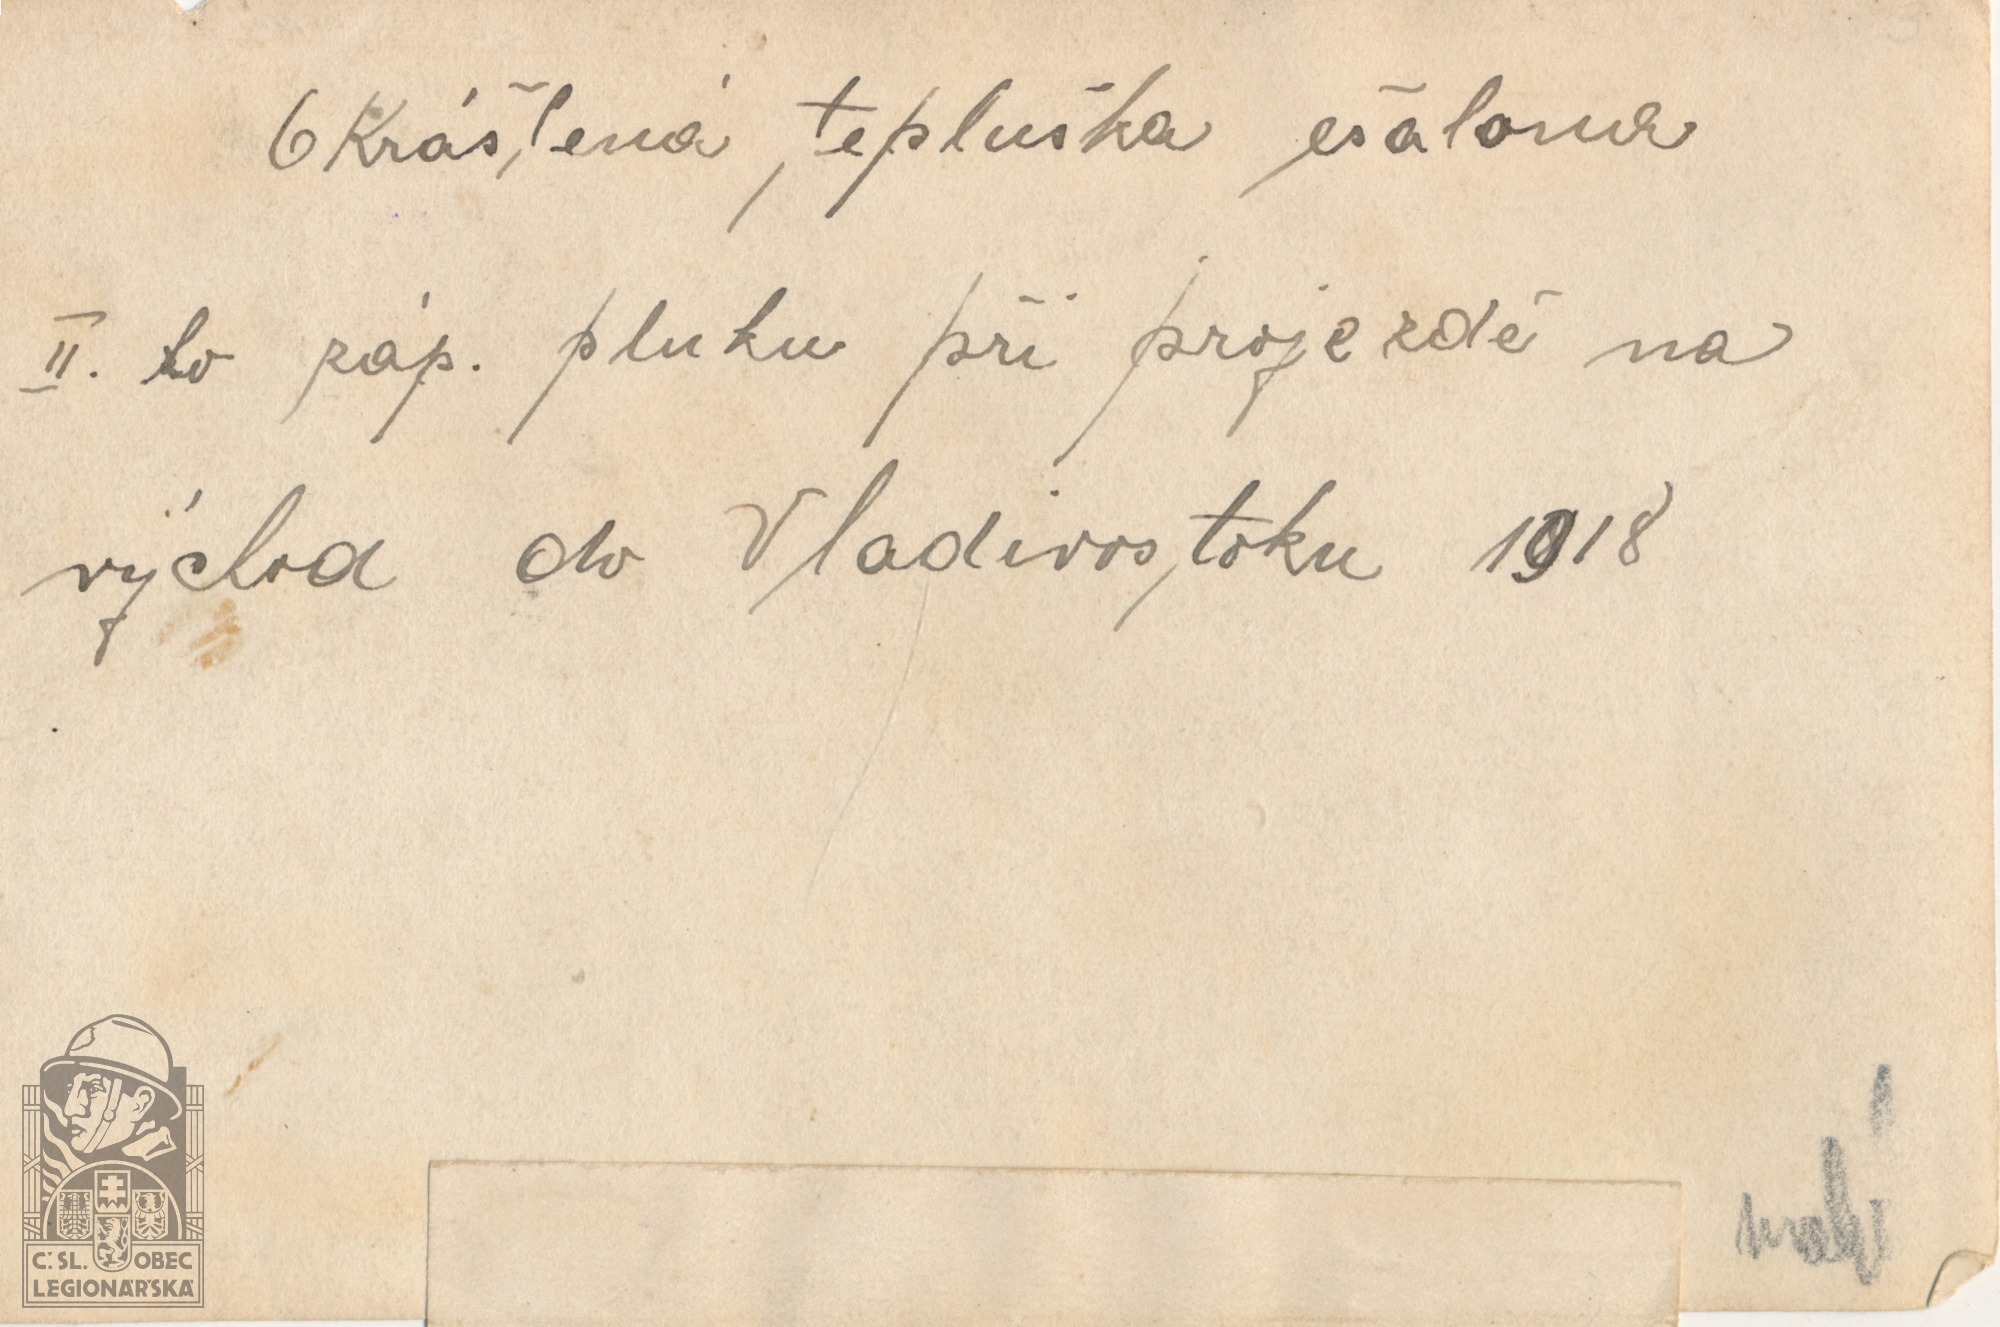 Okrášlená tepluška ešalona
II. ho záp. pluku při projezdě na
východ do Vladivostoku 1918
malý
Č.SL. OBEC
LEGIONÁŘSKÁ